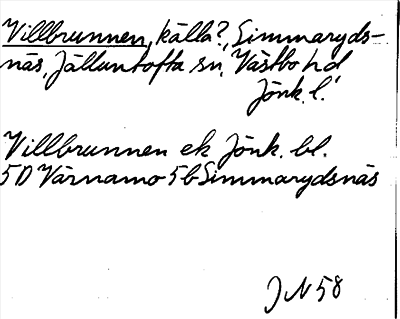 Villbrunnen, källa?, Simmaryds-
näs, Jälluntofta sn, Västbo hd
Jönk. l.
Villbrunnen ek Jönk. bl.
5D Värnamo 5b Simmarydsnäs
JN 58